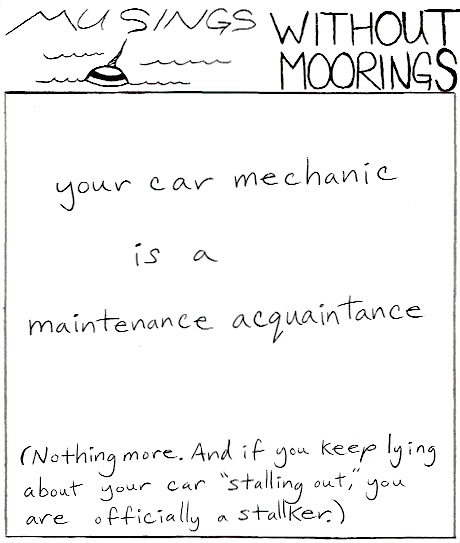 MUSINGS WITHOUT
MOORINGS
your car mechanic
is a
maintenance acquaintance
(Nothing more. And if you keep lying
about your car "stalling out," you
are officially a stallker.)